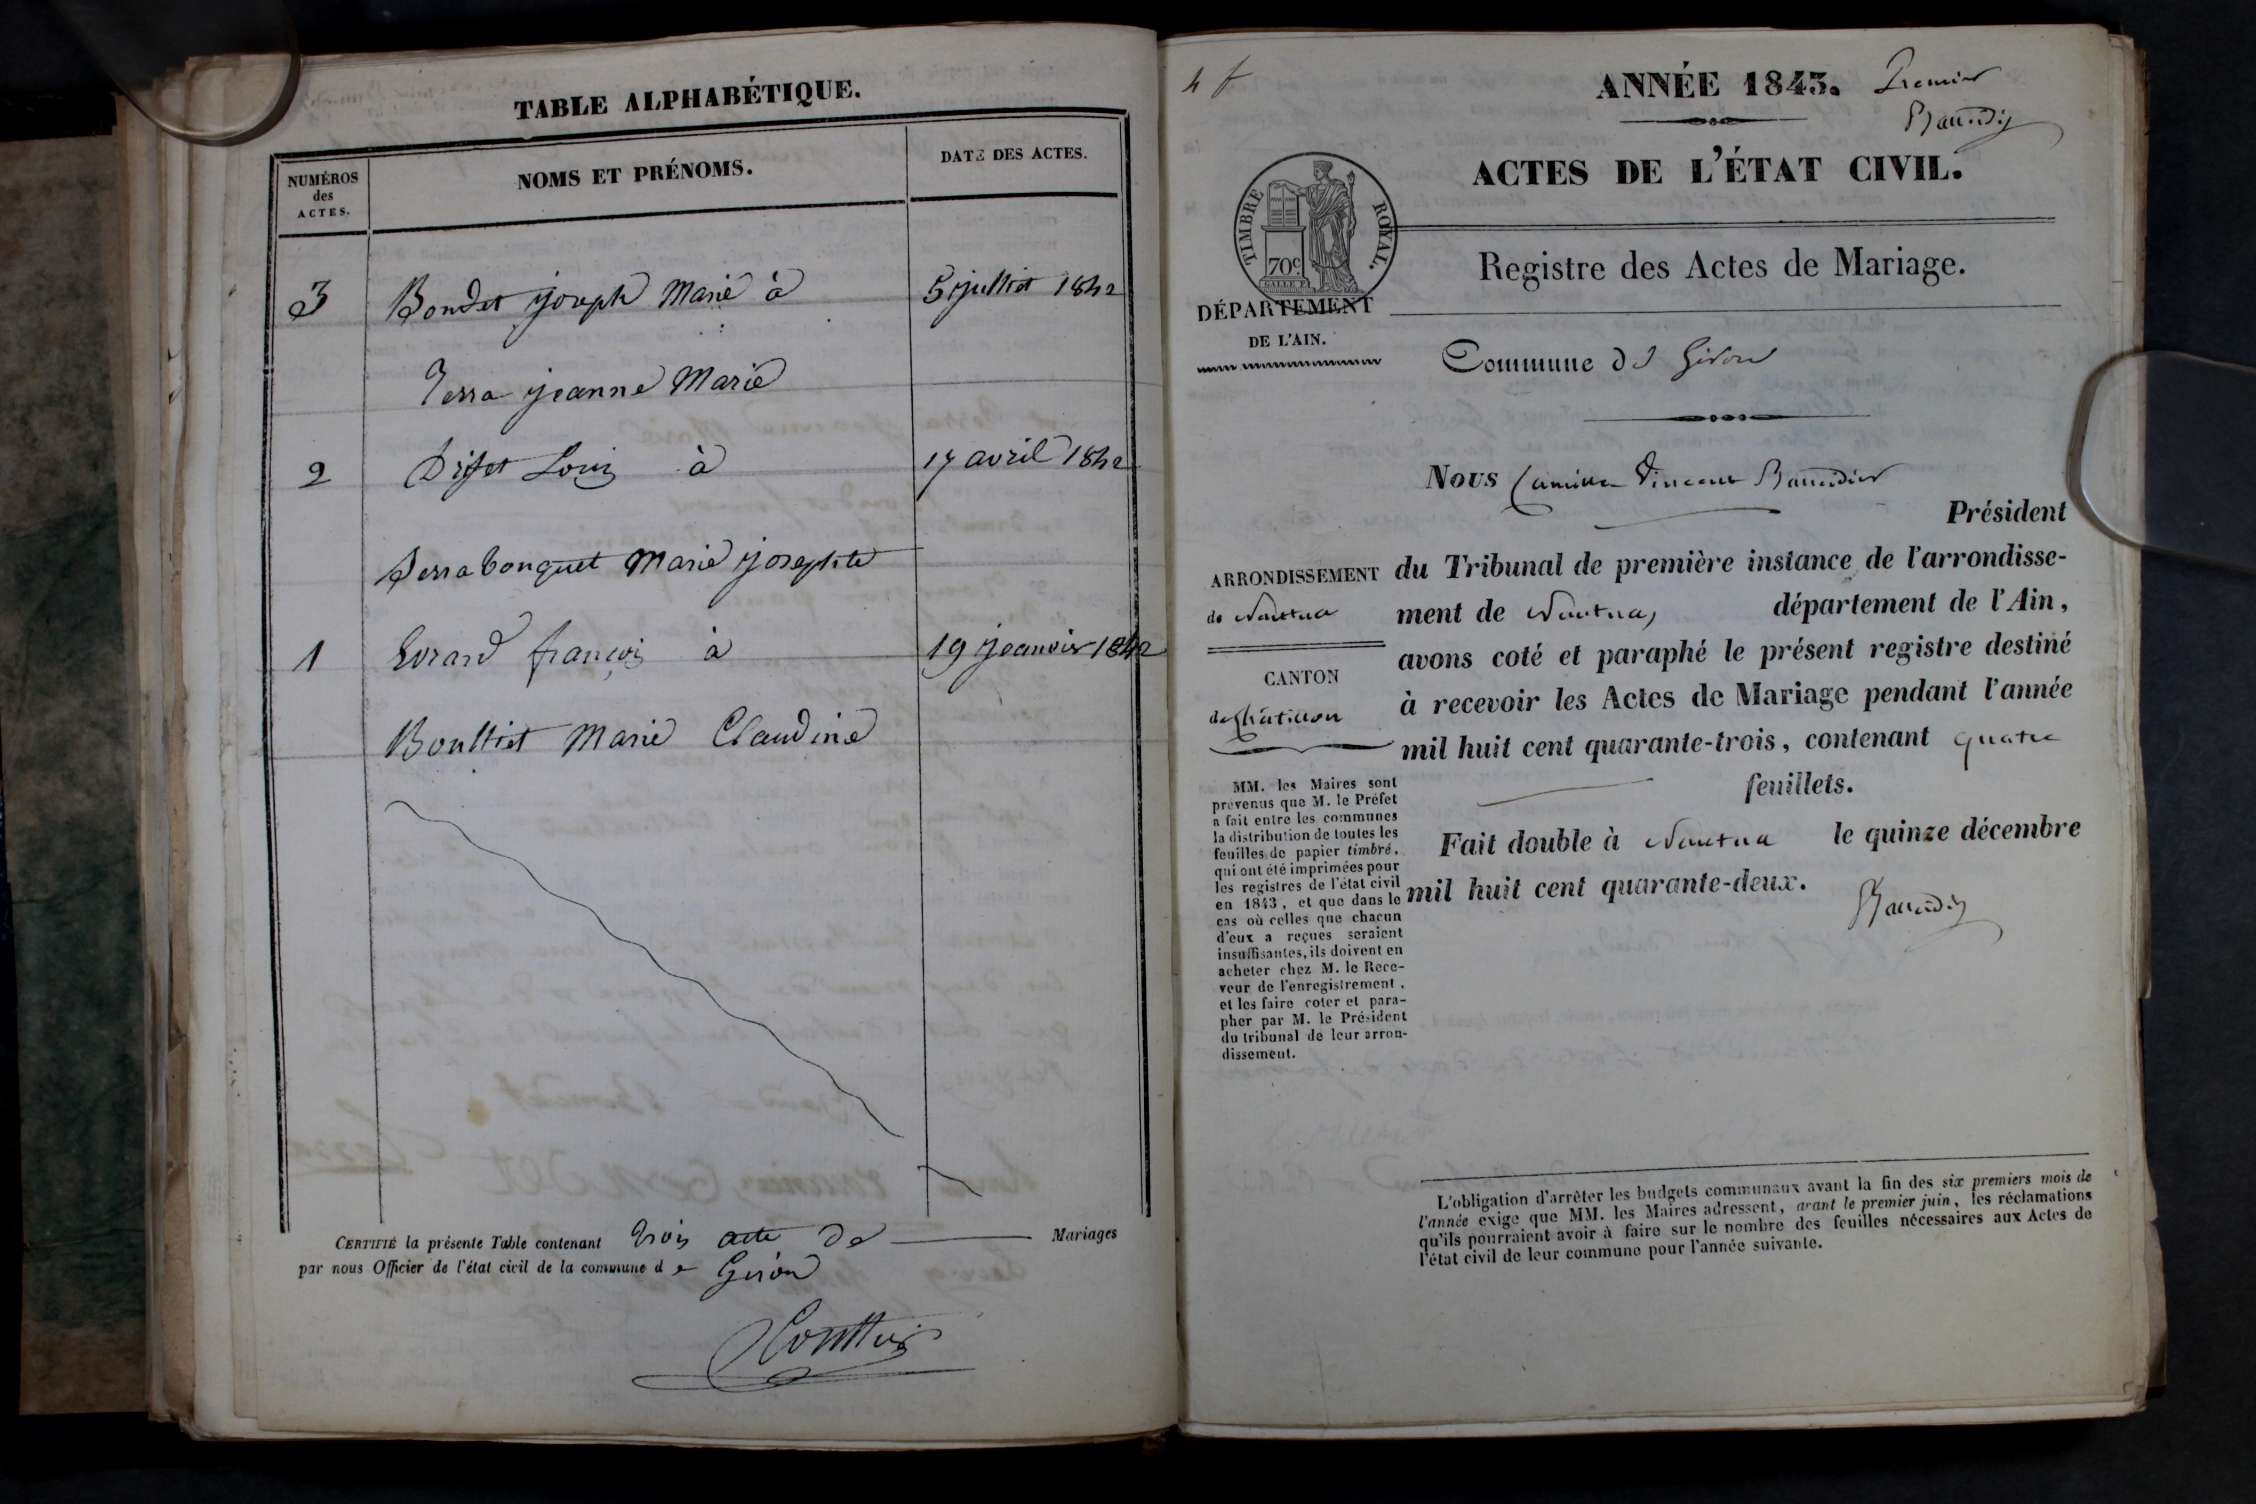 TABLE ALPHABÉTIQUE.
NUMÉROS
des
ACTES.
NOMS ET PRÉNOMS.
DATE DES ACTES.
3 Bondet joseph Marie à 5 juillet 1842
Terra jeanne Marie
2 Louis à 17 avril 1842
bouquet Marie josephte
1 Evrard françois à 19 jeanvier 1842
Boulliet Marie Claudine
CERTIFIÉ la présente Table contenant trois acte de Mariages
par nous Officier de l'état civil de la commune de Giron
4 f
ANNÉE 1843. Premier
ACTES DE L'ÉTAT CIVIL.
TIMBRE ROYAL.
70c
Registre des Actes de Mariage.
DÉPARTEMENT
DE L'AIN.
Commune de Giron
Nous Camille Vincent Baudier
Président
ARRONDISSEMENT
de Nantua
CANTON
de Châtillon
du Tribunal de première instance de l'arrondisse-
ment de Nantua, département de l'Ain,
avons coté et paraphé le présent registre destiné
à recevoir les Actes de Mariage pendant l'année
mil huit cent quarante-trois, contenant quatre
feuillets.
Fait double à Nantua le quinze décembre
mil huit cent quarante-deux.
MM. les Maires sont
prévenus que M. le Préfet
a fait entre les communes
la distribution de toutes les
feuilles de papier timbré,
qui ont été imprimées pour
les registres de l'état civil
en 1843, et que dans le
cas où celles que chacun
d'eux a reçues seraient
insuffisantes, ils doivent en
acheter chez M. le Rece-
veur de l'enregistrement,
et les faire coter et para-
pher par M. le Président
du tribunal de leur arron-
dissement.
L'obligation d'arrêter les budgets communaux avant la fin des six premiers mois de
l'année exige que MM. les Maires adressent, avant le premier juin, les réclamations
qu'ils pourraient avoir à faire sur le nombre des feuilles nécessaires aux Actes de
l'état civil de leur commune pour l'année suivante.